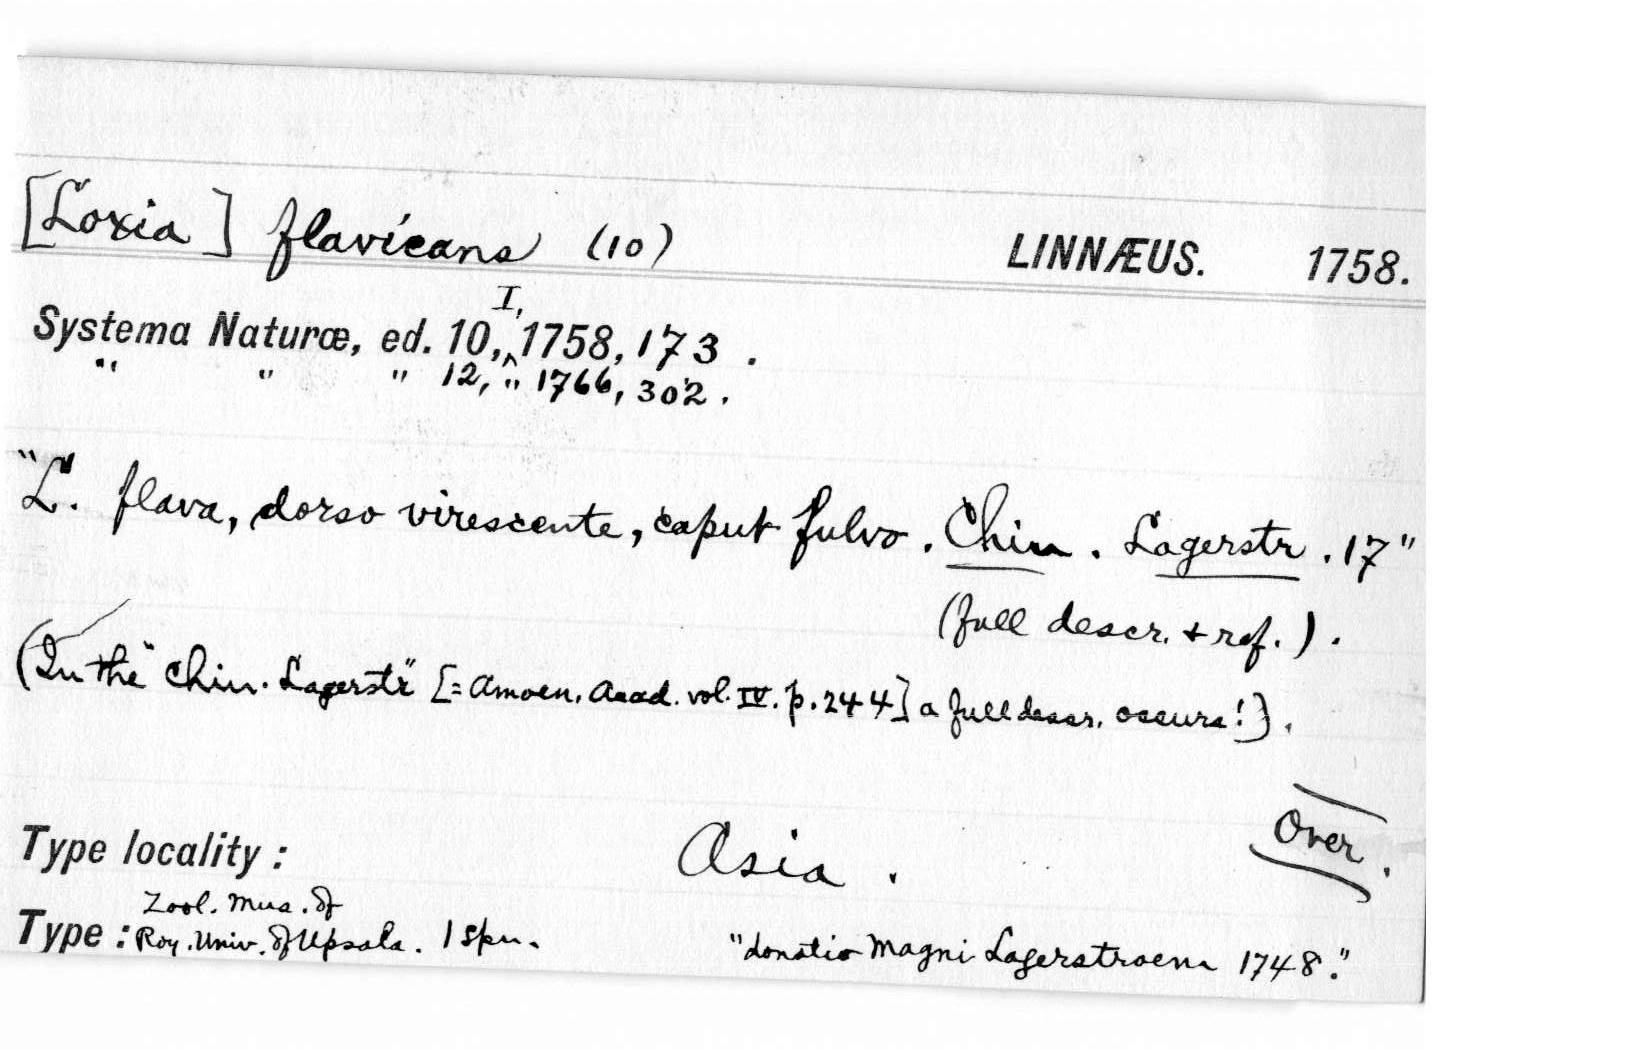 [Loxia] flavicans (10) LINNÆUS. 1758.
I,
Systema Naturæ, ed. 10, ^ 1758, 173.
" " " 12, " 1766, 302.
"L. flava, dorso virescente, caput fulvo. Chin. Lagerstr. 17"
(full descr. + ref.).
(In the "Chin. Lagerstr" [= Amoen. Acad. vol. IV. p. 244] a full descr. occurs!).
Over.
Type locality: Asia.
Zool. Mus. of
Type: Roy. Univ. of Upsala. 1 spm. "donatio Magni Lagerstroem 1748."